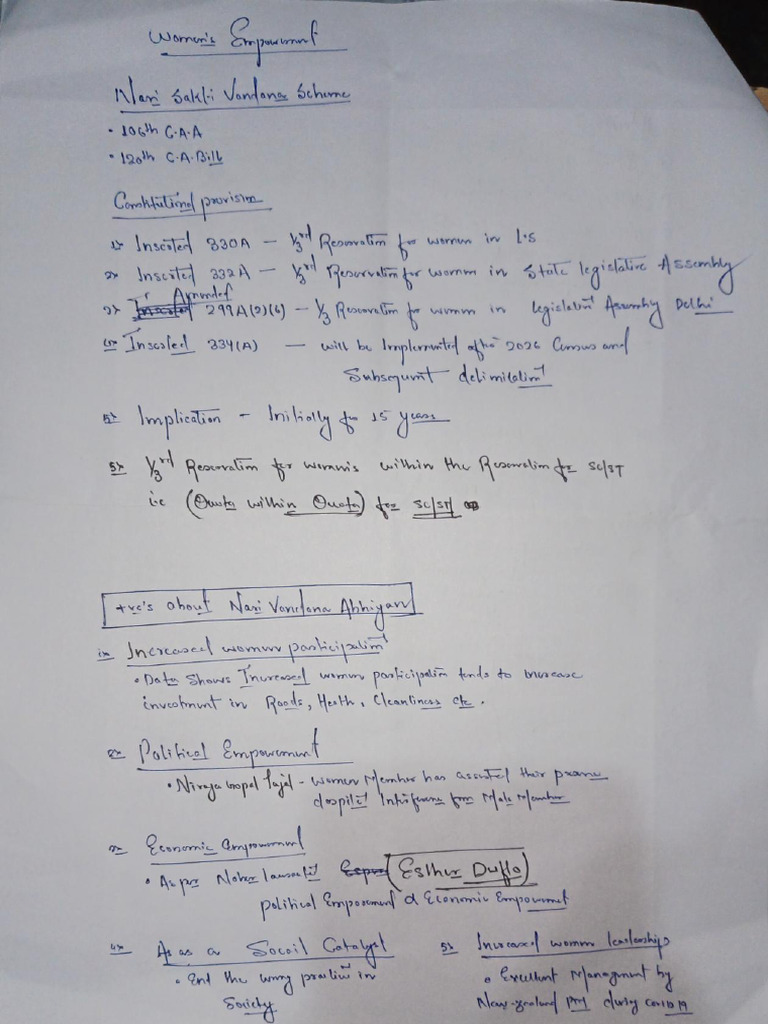 Women's Empowerment
Nari Sakti Vandana Scheme
• 106th C.A.A
• 120th C.A.Bill
Constitutional provision
1> Inserted 330A – 1/3rd Reservation for women in L.S
2> Inserted 332A – 1/3rd Reservation for women in State legislative Assembly
Amended
3> 299A(2)(b) – 1/3 Reservation for women in legislative Assembly Delhi
4> Inserted 334(A) — will be Implemented after 2026 Census and
Subsequent delimitation
5> Implication – Initially for 15 years
5> 1/3rd Reservation for womens within the Reservation for SC/ST
i.e (Quota within Quota) for SC/ST
+ve's about Nari Vandana Abhiyan
1> Increased women participation
• Data shows Increased women participation tends to increase
investment in Roads, Health, Cleanliness etc.
2> Political Empowerment
• Niraja Gopal Jajal – Women Member has asserted their
despite Interference from Male Member
3> Economic empowerment
• As per Nobel laureate (Esther Duflo)
political Empowerment α Economic Empowerment
4> As as a Social Catalyst
• End the wrong practice in
Society
5> Increased women leaderships
• Excellent Management by
New-zealand PM during covid 19